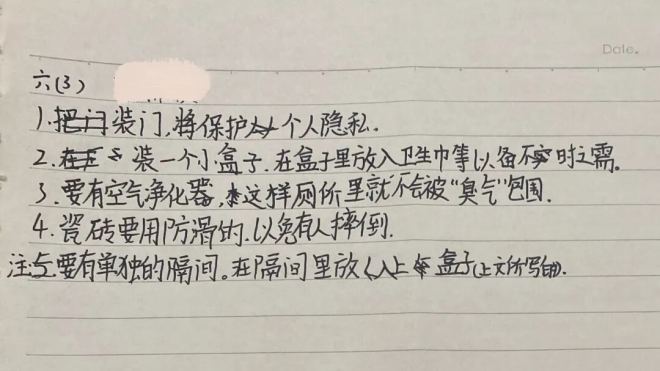 Date.
六(3)
1.把门装门,将保护个人隐私.
2.在装一个小盒子.在盒子里放入卫生巾等以备不时之需。
3.要有空气净化器,这样厕所里就不会被“臭气”包围.
4.瓷砖要用防滑的.以免有人摔倒.
注:5.要有单独的隔间。在隔间里放盒子(上文所写的).